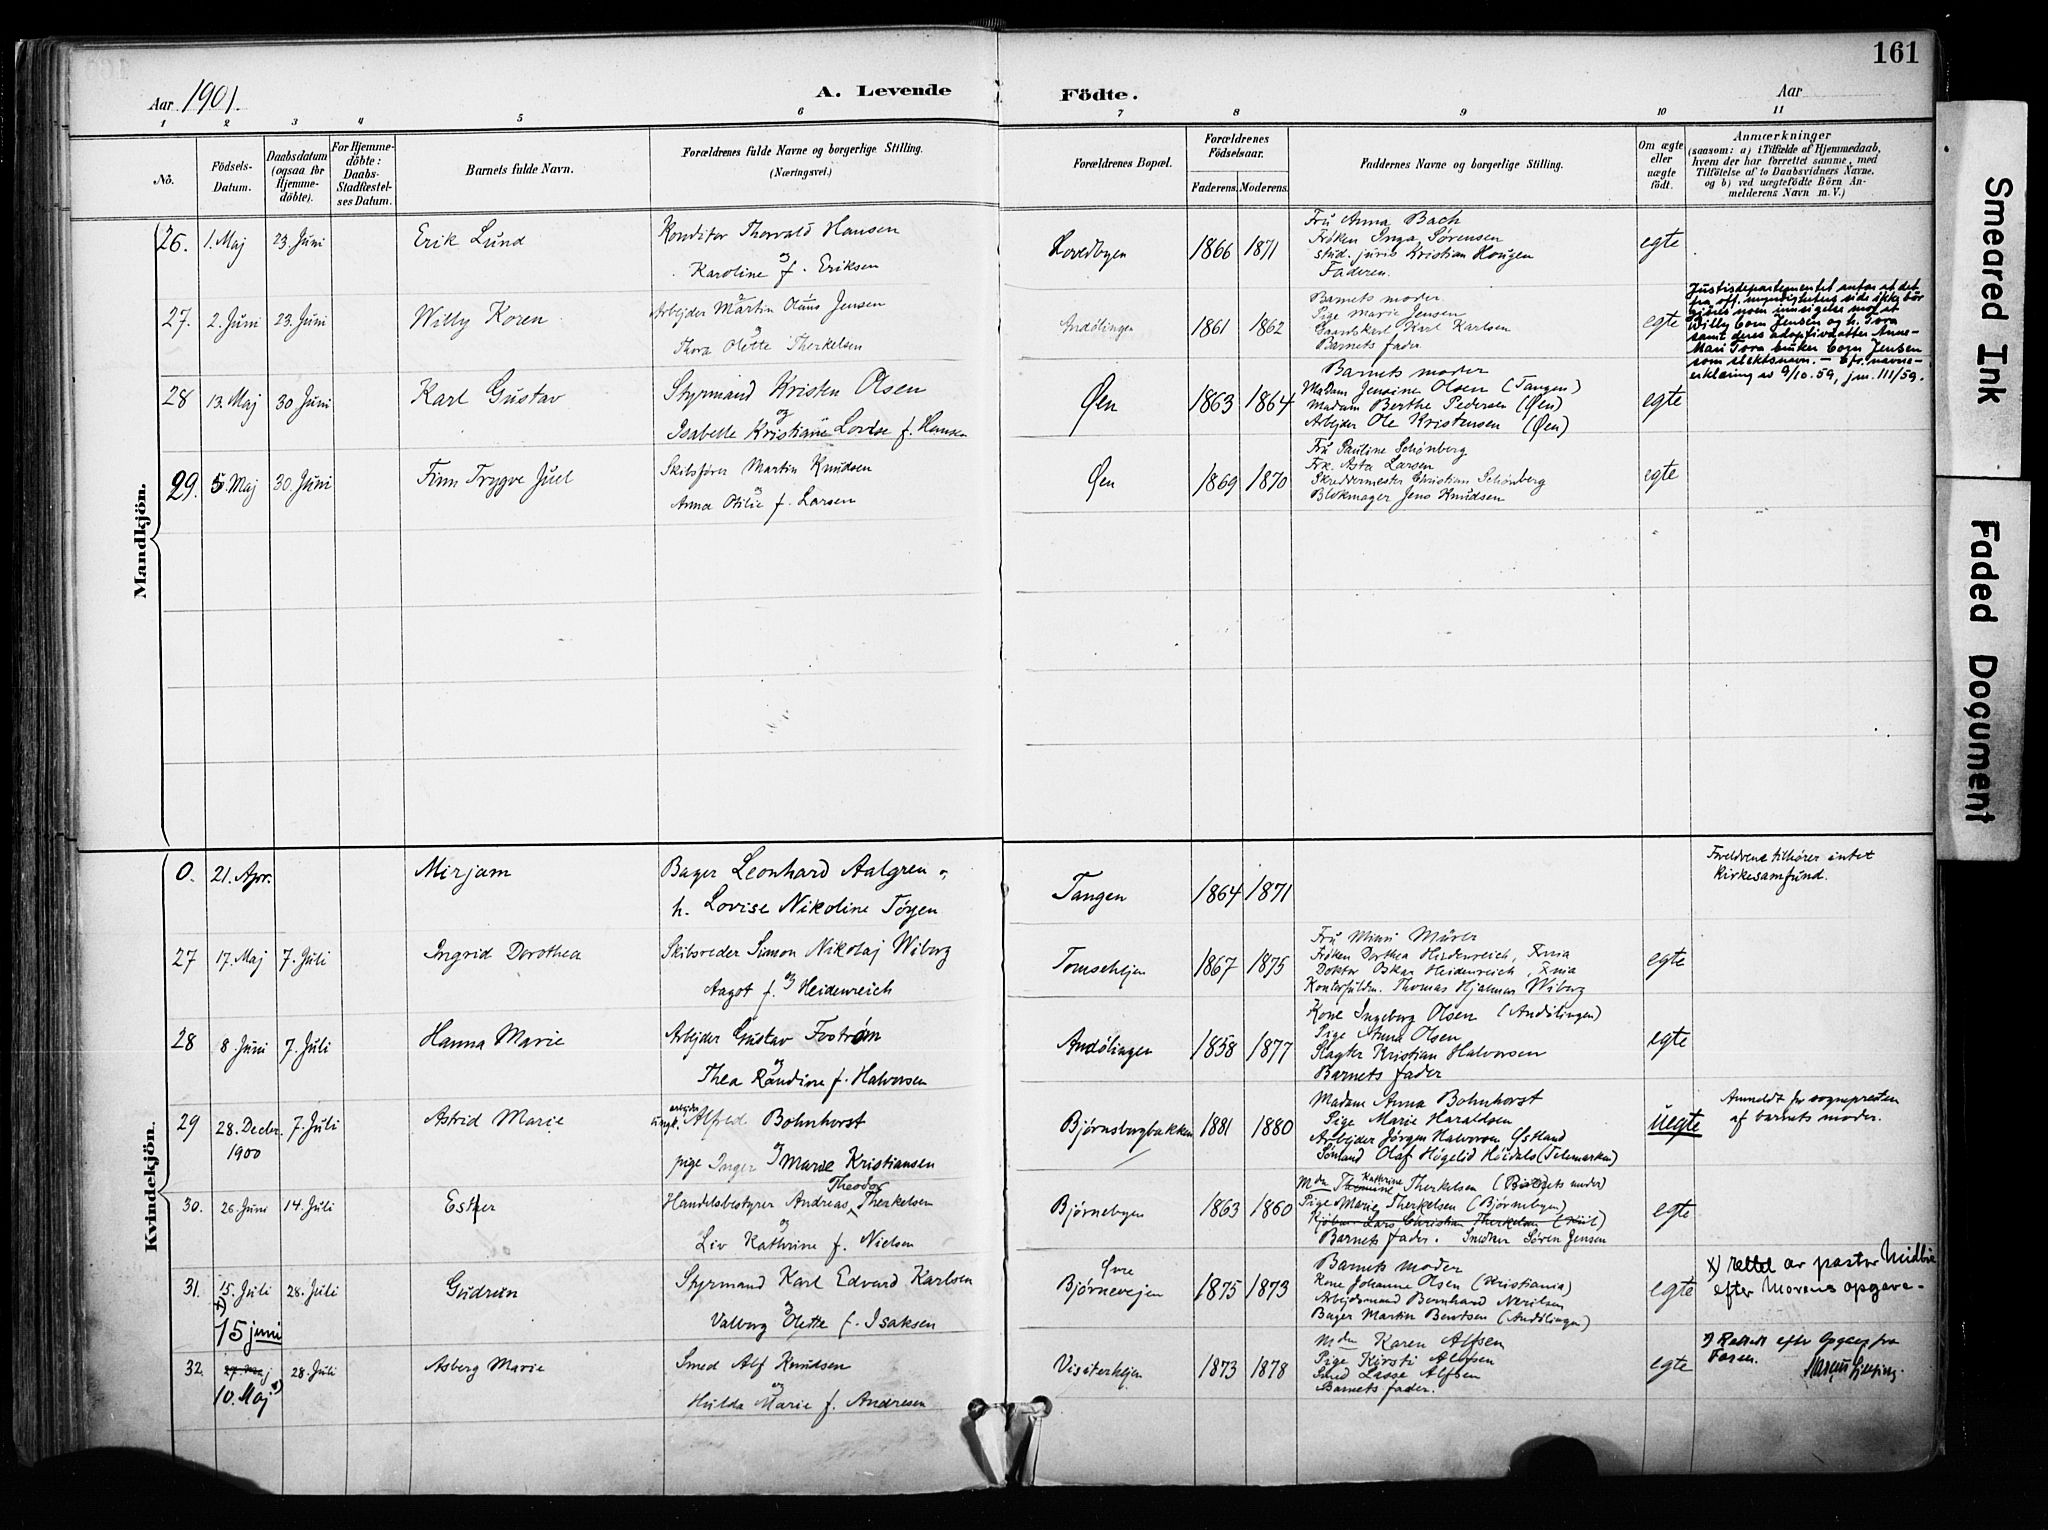 161
Aar 1901.
A. Levende Födte.
Aar
1 2 3 4 5 6 7 8 9 10 11
No.
Födsels-
Datum.
Daabsdatum
(ogsaa for
Hjemme-
döbte).
For Hjemme-
döbte:
Daabs-
Stadfæstel-
ses Datum.
Barnets fulde Navn.
Forældrenes fulde Navne og borgerlige Stilling.
(Næringsvei.)
Forældrenes Bopæl.
Forældrenes
Födselsaar.
Faderens. Moderens.
Faddernes Navne og borgerlige Stilling.
Om ægte
eller
uægte
födt.
Anmærkninger
(saasom: a) i Tilfælde af Hjemmedaab,
hvem der har forrettet samme, med
Tilföielse af to Daabsvidners Navne,
og b) ved uægtefödte Börn An-
melderens Navn m. V.)
Mandkjön.
26. 1. Maj 23. Juni Erik Lund
Konditor Thorvald Hansen
og
Karoline f. Eriksen
1866 1871
Fru Anna Bach
Frøken Inga Sørensen
stud. juris Kristian Hougen
Faderen.
egte
27. 2. Juni 23. Juni Willy Koren
Arbejder Martin Olaus Jensen
og
Thora Olette Therkelsen
Andölingen
1861 1862
Barnets moder.
Pige Marie Jensen
Gaardskarl Karl Karlsen
Barnets fader
egte
Justisdepartementet antar at det
fra off. myndigheters side ikke bør
gjøres noen innsigelse mot at
Willy Corn Jensen og h. Tora
samt deres adoptivdatter Anne-
Mari Tora bruker Corn Jensen
som slektsnavn. - Cfr. navne-
erklæring av 9/10.59, jnr. 111/59.
28 13. Maj 30 Juni Karl Gustav
Styrmand Kristen Olsen
og
Isabelle Kristiane Lovise f. Hansen
Øen
1863 1864
Barnets moder
Madam Jensine Olsen (Tangen)
Madam Berthe Pedersen (Øen)
Arbejder Ole Kristensen (Øen)
egte
29. 5. Maj 30. Juni Finn Trygve Juel
Skibsfører Martin Knudsen
og
Anna Otilie f. Larsen
Øen
1869 1870
Fru Pauline Schønberg
Frk. Asta Larsen
Skreddermester Christian Schønberg
Blokmager Jens Knudsen
egte
Kvindekjön.
0. 21. Apr. Mirjam
Bager Leonhard Aalgren o,
h. Lovise Nikoline Tørjen
Tangen
1864 1871
Foreldrene tilhører intet
kirkesamfund.
27 17. Maj 7. Juli Ingrid Dorothea
Skibsreder Simon Nikolaj Wiborg
og
Aagot f. Heidenreich
1867 1875
Fru Mimi Mürer
Frøken Dorthea Heidenreich, Xnia
Doktor Oskar Heidenreich, Xnia
Kontorfuldm. Thomas Hjalmar Wiborg
egte
28 8. Juni 7. Juli Hanna Marie
Arbejder Gustav Foström
og
Thea Randine f. Halvorsen
Andölingen
1858 1877
Kone Ingeborg Olsen (Andölingen)
Pige Anna Olsen
Slagter Kristian Halvorsen
Barnets fader
egte
29 28. Decbr. 1900 7. Juli Astrid Marie
ungk. arbejder Alfred Bohnhorst
og
pige Inger Marie Kristiansen
Bjørnsbergbakken
1881 1880
Madam Anna Bohnhorst
Pige Marie Haraldsen
Arbejder Jørgen Halvorsen Østland
Olaf Høgelid Höidals (Telemarken)
uegte
Anmeldt for sognepresten
af barnets moder.
30. 26. Juni 14. Juli Esther
Handelsbestyrer Andreas Theodor Therkelsen
og
Liv Kathrine f. Nielsen
Bjørnebyen
1863 1860
Mdm Kathrine Therkelsen
Pige Marie Therkelsen (Bjørnebyen)
Lars Christian Therkelsen
Barnets fader. Snedker Søren Jensen
egte
31. 15. Juli 28. Juli Gudrun
x)
15 juni
Styrmand Karl Edvard Karlsen
og
Valborg Olette f. Isaksen
Øvre
Bjørnevejen
1875 1873
Barnets moder
Kone Johanne Olsen (Kristiania)
Arbejdsmand Bernhard Nerilsen
Bager Martin Berntsen (Andölingen)
egte
x) rettet av pastor Midbøe
efter Morens opgave-
32. 27. Maj 28. Juli Asberg Marie
10. Maj
Smed Alf Knudsen
og
Hulda Marie f. Andresen
1873 1878
Mdm Karen Alfsen
Pige Kirsti Alfsen
Smed Lasse Alfsen
Barnets fader.
egte
Rettet efter Opgave fra
Faren.
Smeared Ink
Faded Document